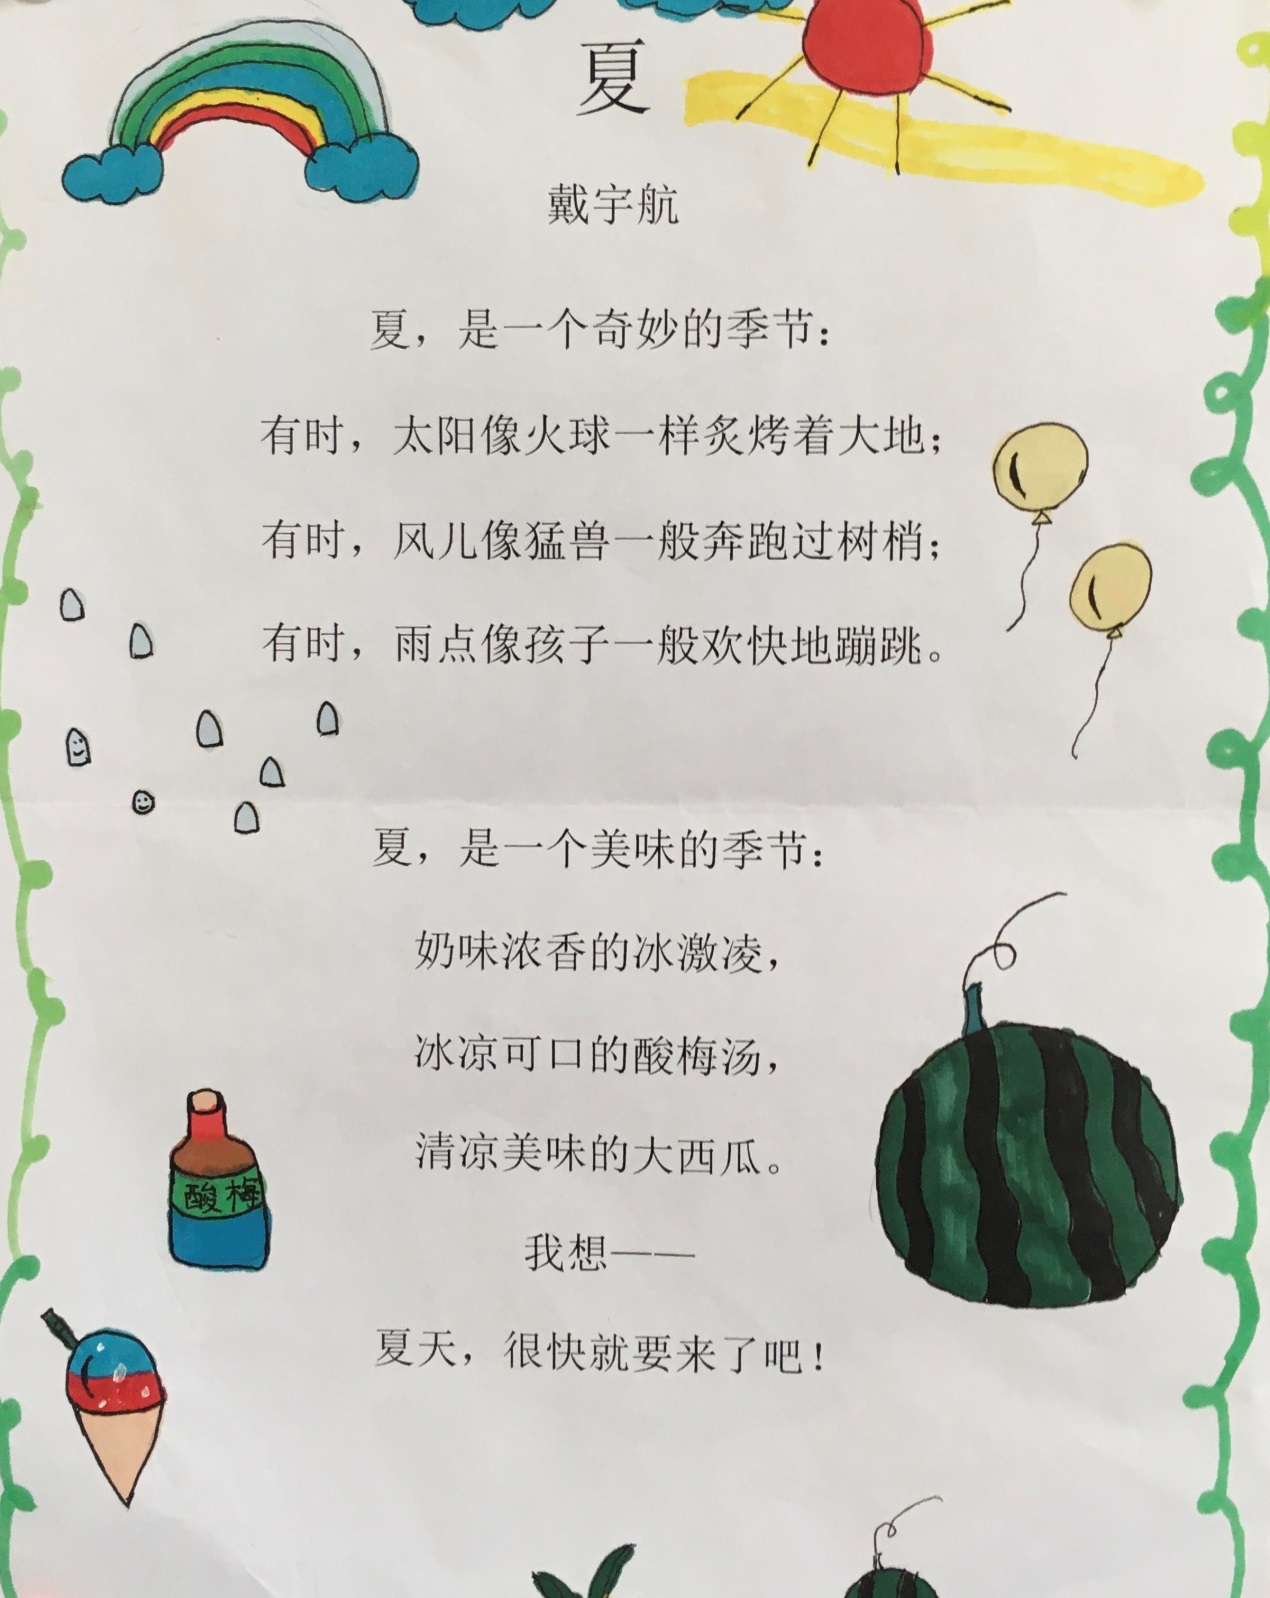 夏
戴宇航
夏，是一个奇妙的季节：
有时，太阳像火球一样炙烤着大地；
有时，风儿像猛兽一般奔跑过树梢；
有时，雨点像孩子一般欢快地蹦跳。
夏，是一个美味的季节：
奶味浓香的冰激凌，
冰凉可口的酸梅汤，
清凉美味的大西瓜。
酸梅
我想——
夏天，很快就要来了吧！